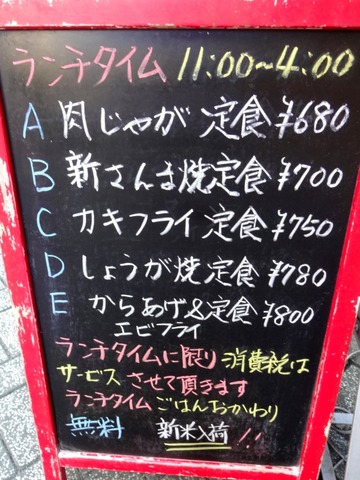 ランチタイム 11:00~4:00
A 肉じゃが 定食 ¥680
B 新さんま焼定食 ¥700
C カキフライ 定食 ¥750
D しょうが焼定食 ¥780
E からあげ&定食 ¥800
エビフライ
ランチタイムに限り 消費税は
サービス させて頂きます
ランチタイム ごはんおかわり
無料 新米入荷!!